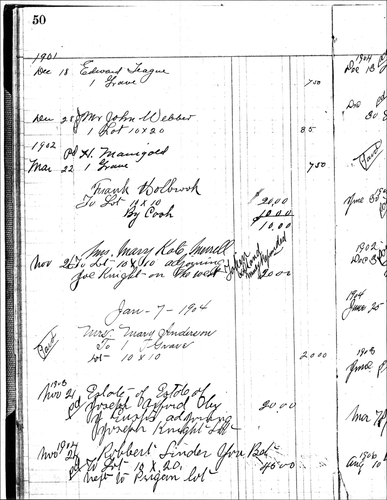 50
1901
Dec 18 Edward Teague
1 Grave 750
Dec 28 Mr John Webber
1 Lot 10 x 20 85
1902
Pd H. Manigold
Mar 22 1 Grave 750
Frank Holbrook
To Lot 10 x 10 $ 20.00
By Cash 10.00
10.00
Mrs. Mary Kate Murrell
Nov 21 To Lot 10 x 10 adjoining
Joe Knight on the west 20.00
Jan - 7 - 1904
Paid
Mrs. Mary Anderson
To 1 Grave
Lot 10 x 10 20 00
1903
Nov 21 Estate of Estate of
Joseph
adjoining 20.00
Joseph Knight Lot
Nov 21 Robbert Linder You Bet
Pd To Lot 18 x 20, 45.00
next to Pigeon lot
1904
Dec 18
Dec
Paid
June 30
1902
Dec 3
1904
June 25
1903
June
Mar
1906
Aug 10